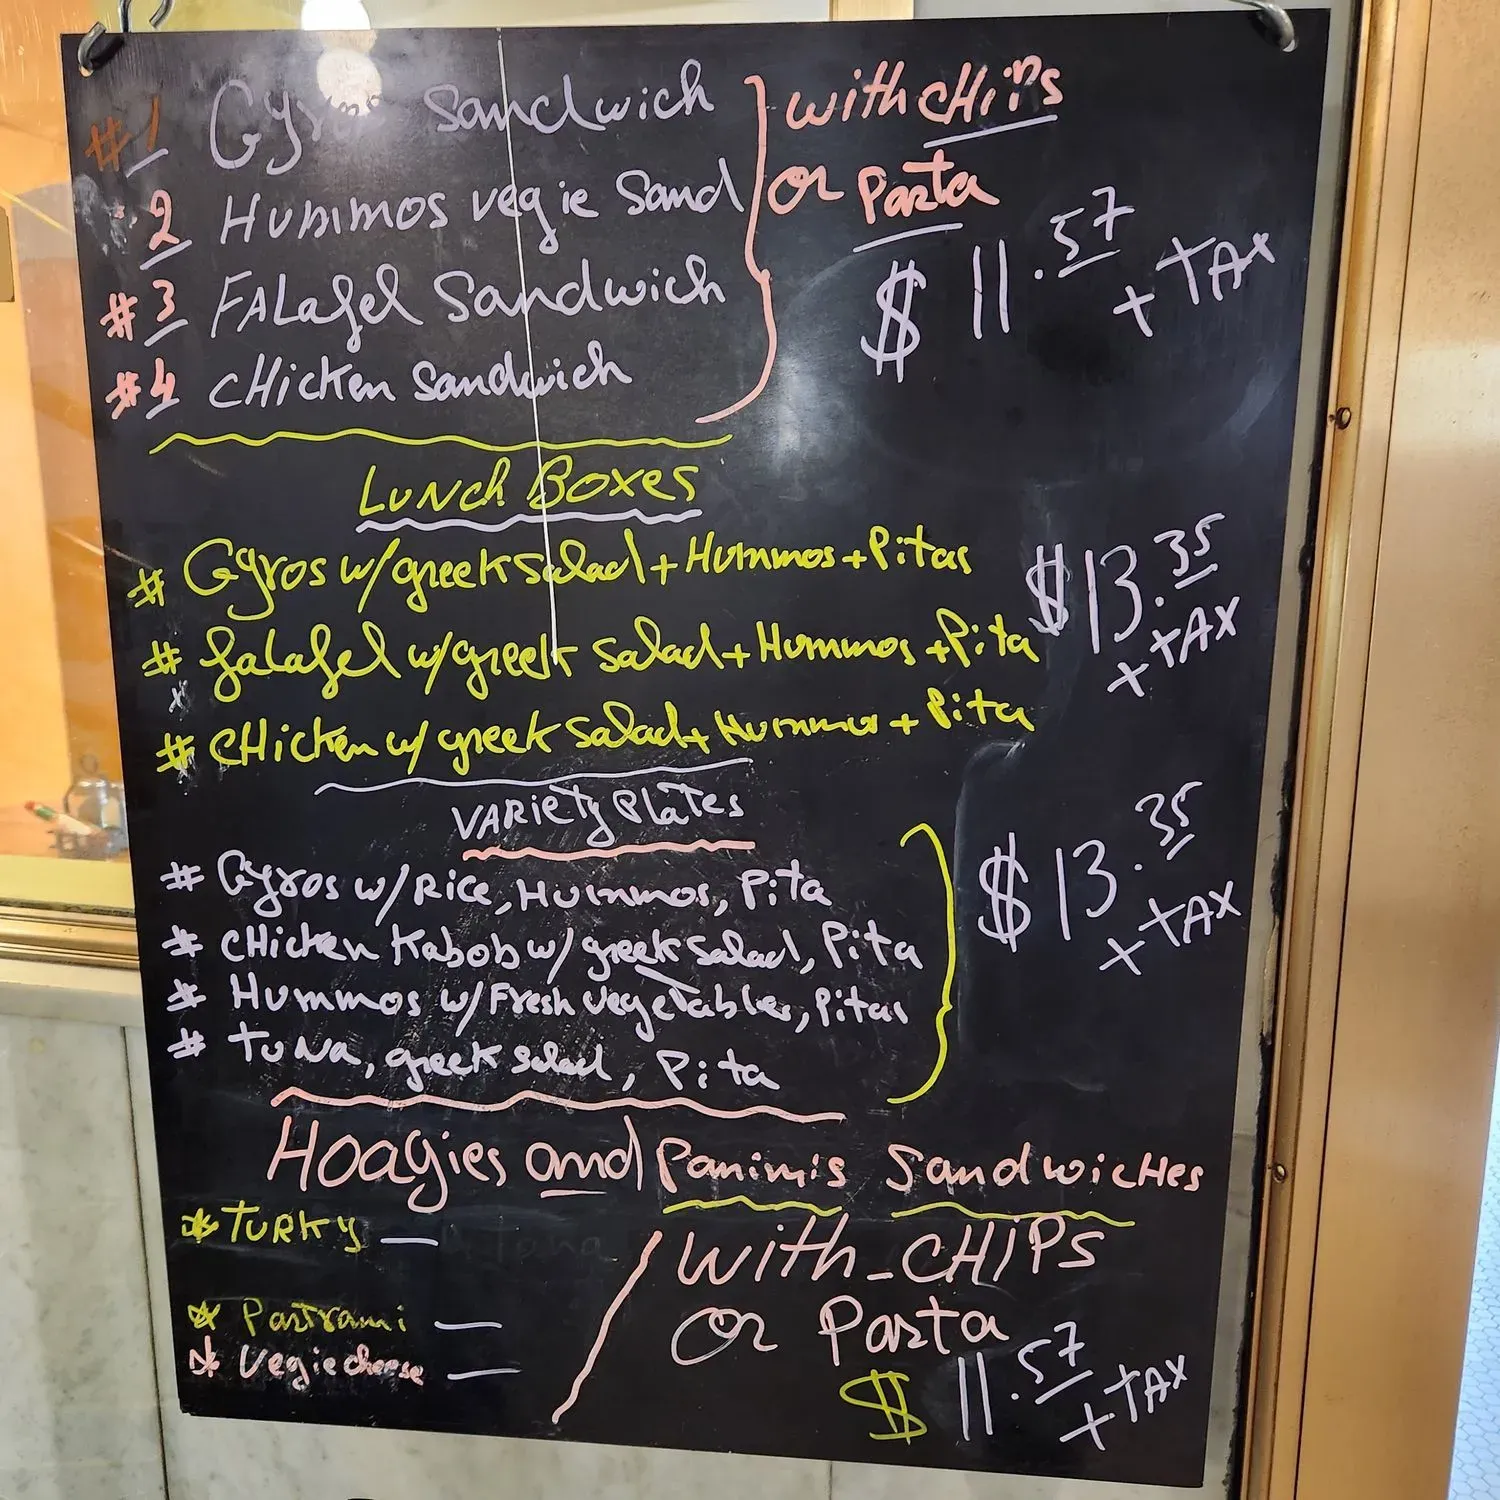 #1 Gyros Sandwich with CHips
2 Hummos vegie Sand or Pasta
#3 FALafel Sandwich $11.57 + TAX
#4 CHicken Sandwich
Lunch Boxes
# Gyros w/greek Salad + Hummos + Pitas $13.35
# falafel w/greek Salad + Hummos + Pita + TAX
# CHicken w/ greek Salad + Hummos + Pita
VARiety Plates
# Gyros w/Rice, Hummos, Pita $13.35
# CHicken Kabob w/ greek Salad, Pita + TAX
# Hummos w/Fresh vegetables, Pitas
# TuNa, greek Salad, Pita
HOAgies and Paninis SandwicHes
* TURKY — with - CHIPS
* Pastrami — or Pasta
* Vegie cheese — $11.57 + TAX